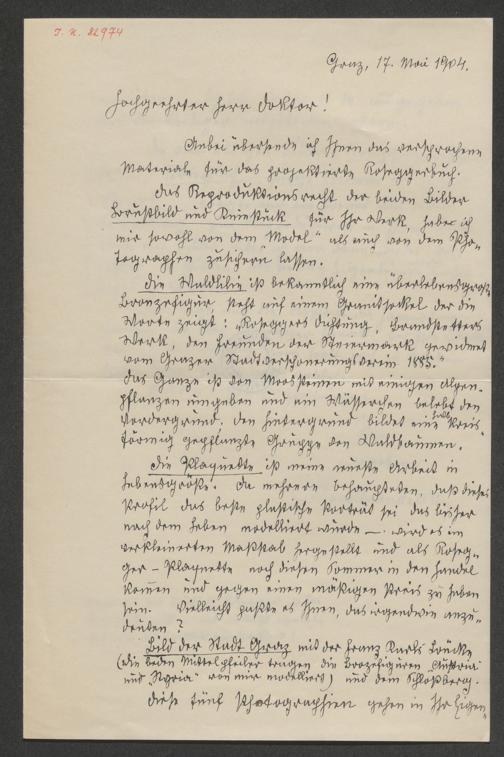 J. N. 82974
Graz, 17. Mai 1904.
Hochgeehrter Herr Doktor!
Anbei übersende ich Ihnen das versprochene
Material für das projektierte Roseggerbuch.
Das Reproduktionsrecht der beiden Bilder
Brustbild und Kniestück für Ihr Werk, habe ich
mir sowohl von dem "Model" als auch von dem Pho-
tographen zusichern lassen.
Die Waldlilie ist bekanntlich eine überlebensgroße
Bronzefigur, steht auf einem Granitsockel der die
Worte zeigt: "Roseggers Dichtung, Brandstetters
Werk, den Freunden der Steiermark gewidmet
vom Grazer Stadtverschönerungsverein 1885."
Das Ganze ist von Moossteinen mit einigen Alpen-
pflanzen umgeben und ein Wässerchen belebt den
Vordergrund. Den Hintergrund bildet eine halb kreis-
förmig gepflanzte Gruppe von Waldbäumen.
Die Plaquette ist meine neueste Arbeit in
Lebensgröße. Da mehrere behaupteten, daß dieses
Profil das beste plastische Porträt sei das bisher
nach dem Leben modelliert wurde — wird es im
verkleinerten Maßstab hergestellt und als Roseg-
ger-Plaquette noch diesen Sommer in den Handel
kommen und gegen einen mäßigen Preis zu haben
sein. Vielleicht paßte es Ihnen, das irgendwie anzu-
deuten?
Bild der Stadt Graz mit der Franz Karls Brücke
(die beiden Mittelpfeiler tragen die Broncefiguren "Austria"
und "Styria" von mir modelliert) und dem Schloßberg.
Diese fünf Photographien gehen in Ihr Eigen-